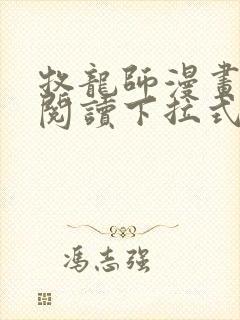 牧龍師漫畫
閱讀下拉式
馮志强